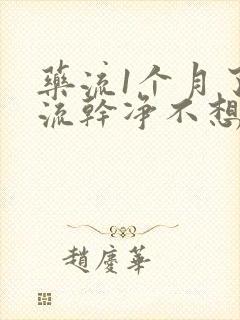 藥流1个月了
流幹凈不想
趙慶華